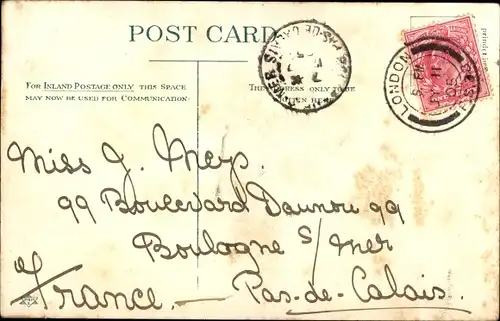 POST CARD
FOR INLAND POSTAGE ONLY THIS SPACE
MAY NOW BE USED FOR COMMUNICATION.
THE ADDRESS ONLY TO BE
WRITTEN HERE.
PAS-DE-CALAIS
LONDON
Miss J. Meys.
99 Boulevard Daunou 99
Boulogne s/mer
France. — Pas-de-Calais.